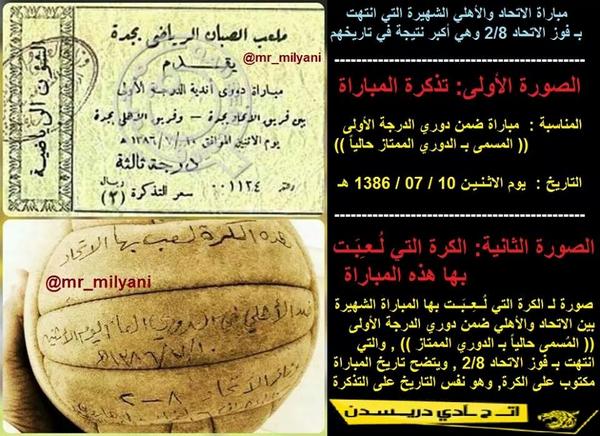 ملعب الصبان الرياضي بجدة
يقدم
@mr_milyani
مباراة دوري أندية الدرجة الأولى
بين فريق الاتحاد بجدة — وفريق الاهلي بجدة
يوم الاثنين الموافق ١٣٨٦/٧/١٠
درجة ثالثة
رقم ٠٠١١٣٤ سعر التذكرة (٢) ريال
الشئون الرياضية
@mr_milyani
هذه الكرة لعب بها الاتحاد
ضد الأهلي في الدوري العام يوم الاثنين
١٣٨٦/٧/١٠هـ
وفاز الاتحاد
٨-٢
مباراة الاتحاد والأهلي الشهيرة التي انتهت
بـ فوز الاتحاد 2/8 وهي أكبر نتيجة في تاريخهم
الصورة الأولى: تذكرة المباراة
المناسبة : مباراة ضمن دوري الدرجة الأولى
(( المسمى بـ الدوري الممتاز حالياً ))
التاريخ : يوم الاثنـين 10 / 07 / 1386 هـ
الصورة الثانية: الكرة التي لُـعِـبَـت
بها هذه المباراة
صورة لـ الكرة التي لُـعِـبَـت بها المباراة الشهيرة
بين الاتحاد والأهلي ضمن دوري الدرجة الأولى
(( المُسمى حالياً بـ الدوري الممتاز )) , والتي
انتهت بـ فوز الاتحاد 2/8 , ويتضح تاريخ المباراة
مكتوب على الكرة, وهو نفس التاريخ على التذكرة
اتـحـادي دريـسـدن